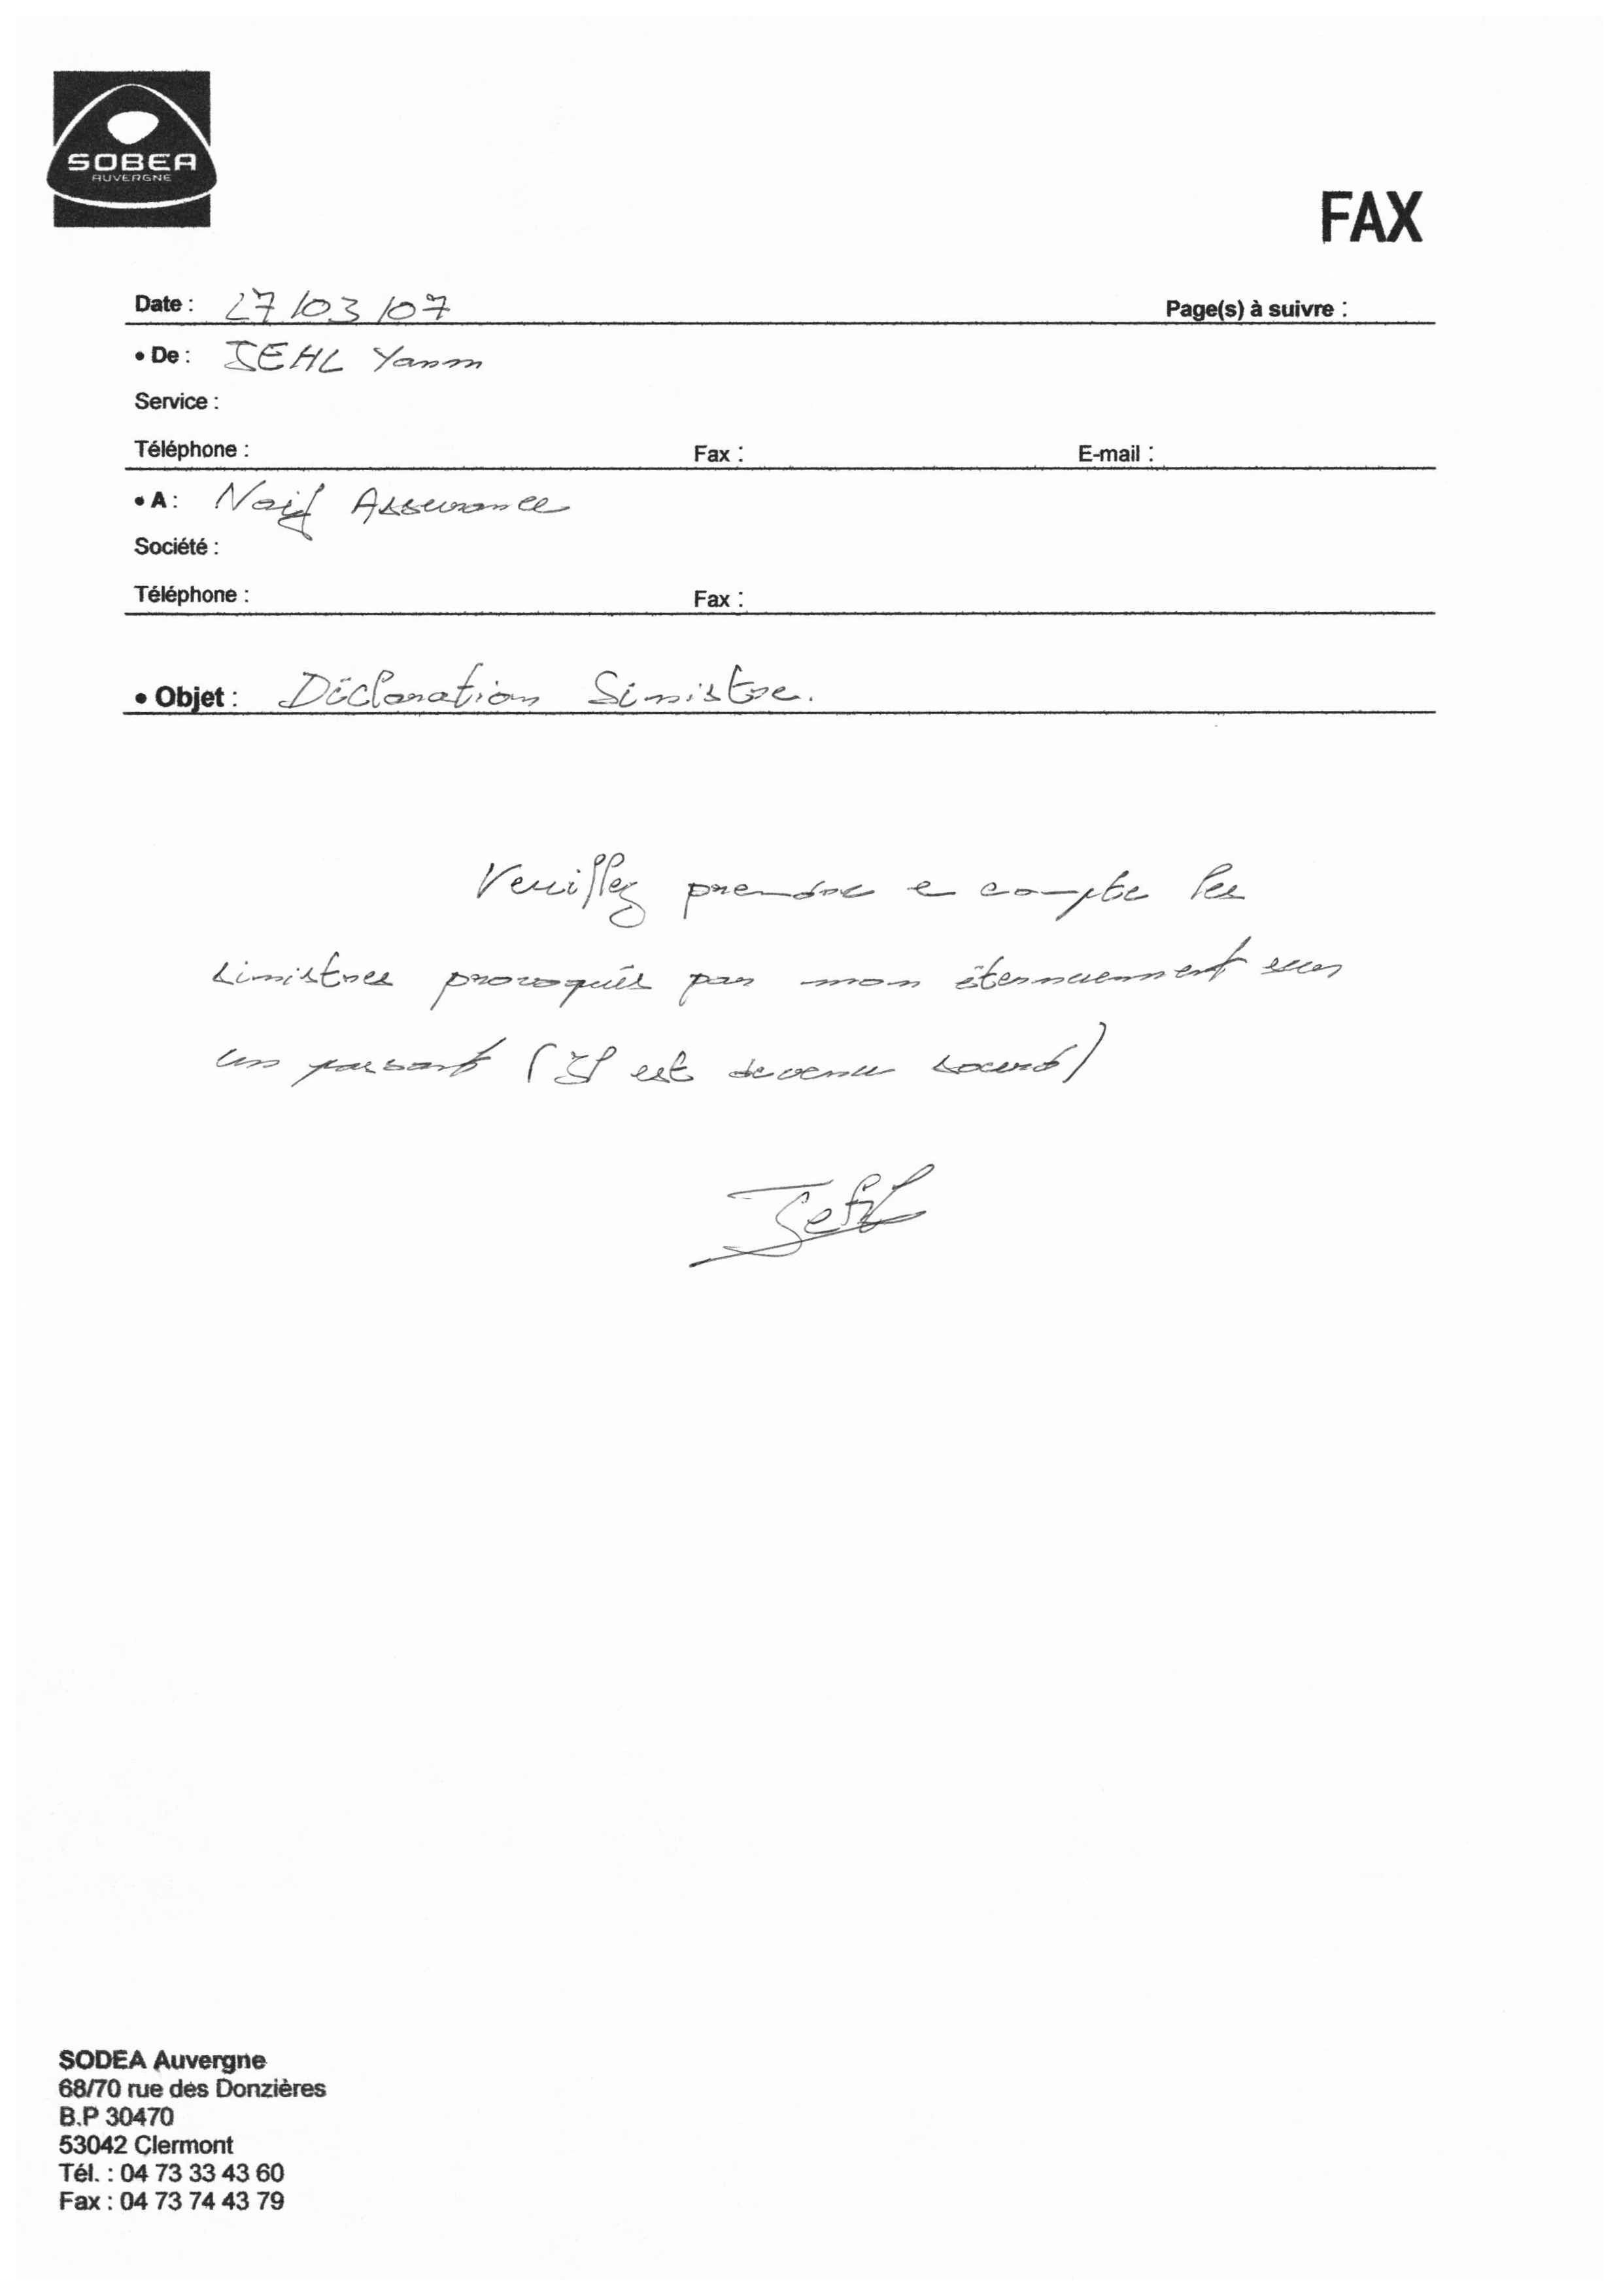 SOBEA
AUVERGNE
FAX
Date : 27/03/07 Page(s) à suivre :
• De : JEHL Yann
Service :
Téléphone : Fax : E-mail :
• A : Naif Assurance
Société :
Téléphone : Fax :
• Objet : Déclaration Sinistre.
Veuillez prendre e compte les
sinistres provoqués par mon éternuement sur
un passant (Il est devenu sourd)
Jehl
SODEA Auvergne
68/70 rue des Donzières
B.P 30470
53042 Clermont
Tél. : 04 73 33 43 60
Fax : 04 73 74 43 79